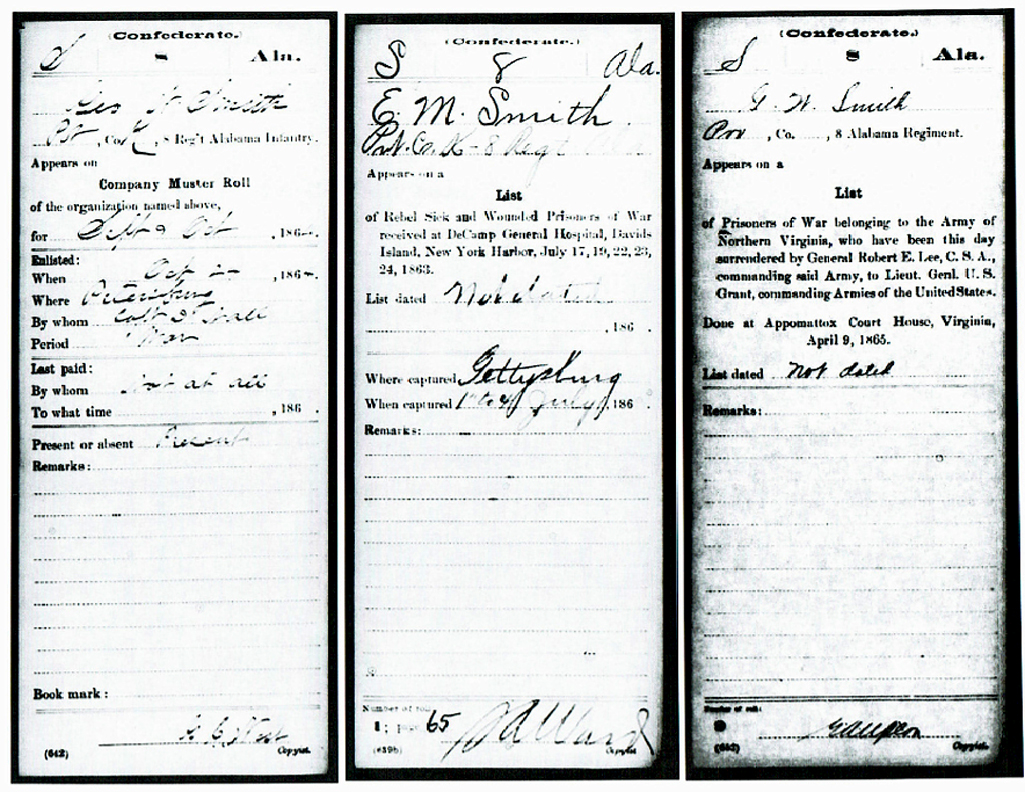 (Confederate.)
S 8 Ala.
Geo W Smith
Pvt, Co. K, 8 Reg't Alabama Infantry.
Appears on
Company Muster Roll
of the organization named above,
for Sept & Oct, 186
Enlisted:
When Oct, 186
Where Petersburg
By whom Capt
Period War
Last paid:
By whom not at all
To what time , 186 .
Present or absent Present
Remarks:
Book mark:
(642) Copyist.
(Confederate.)
S 8 Ala.
E. M. Smith
Pvt. Co. K - 8 Regt Ala
Appears on a
List
of Rebel Sick and Wounded Prisoners of War
received at DeCamp General Hospital, Davids
Island, New York Harbor, July 17, 19, 22, 23,
24, 1863.
List dated Not dated
, 186 .
Where captured Gettysburg
When captured 1st to 4 July, 186 .
Remarks:
Number of roll:
1; page 65 Ward
(639b) Copyist.
(Confederate.)
S 8 Ala.
G. W. Smith
Prv, Co. , 8 Alabama Regiment.
Appears on a
List
of Prisoners of War belonging to the Army of
Northern Virginia, who have been this day
surrendered by General Robert E. Lee, C. S. A.,
commanding said Army, to Lieut. Genl. U. S.
Grant, commanding Armies of the United States.
Done at Appomattox Court House, Virginia,
April 9, 1865.
List dated Not dated
Remarks:
Number of roll:
Copyist.